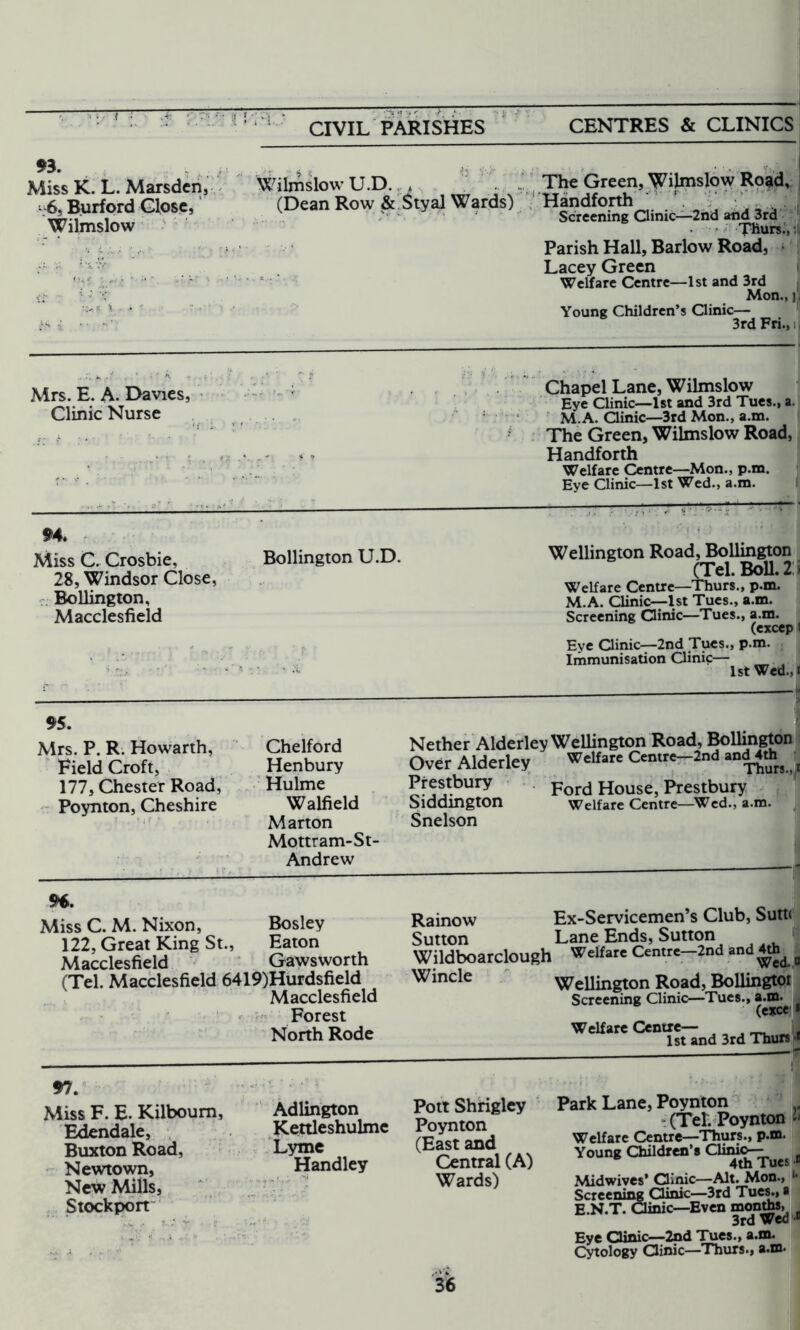 CIVIL PARISHES CENTRES & CLINICS
93.
Miss K. L. Marsden,
6, Burford Close,
Wilmslow
Wilmslow U.D.
(Dean Row & Styal Wards)
The Green, Wilmslow Road,
Handforth
Screening Clinic—2nd and 3rd
Thurs.,
Parish Hall, Barlow Road,
Lacey Green
Welfare Centre—1st and 3rd
Mon.,
Young Children's Clinic—
3rd Fri.,
Mrs. E. A. Davies,
Clinic Nurse
Chapel Lane, Wilmslow
Eye Clinic—1st and 3rd Tues., a.
M.A. Clinic—3rd Mon., a.m.
The Green, Wilmslow Road,
Handforth
Welfare Centre—Mon., p.m.
Eye Clinic—1st Wed., a.m.
94.
Miss C. Crosbie,
28, Windsor Close,
Bollington,
Macclesfield
Bollington U.D.
Wellington Road, Bollington
(Tel. Boll. 2
Welfare Centre—Thurs., p.m.
M.A. Clinic—1st Tues., a.m.
Screening Clinic—Tues., a.m.
(excep
Eye Clinic—2nd Tues., p.m.
Immunisation Clinic—
1st Wed.,
95.
Mrs. P. R. Howarth,
Field Croft,
177, Chester Road,
Poynton, Cheshire
Chelford
Henbury
Hulme
Walfield
Marton
Mottram-St-
Andrew
Nether Alderley
Over Alderley
Prestbury
Siddington
Snelson
Wellington Road, Bollington
Welfare Centre—2nd and 4th
Thurs.,
Ford House, Prestbury
Welfare Centre—Wed., a.m.
96.
Miss C. M. Nixon,
122, Great King St.,
Macclesfield
(Tel. Macclesfield 6419)
Bosley
Eaton
Gawsworth
Hurdsfield
Macclesfield
Forest
North Rode
Rainow
Sutton
Wildboarclough
Wincle
Ex-Servicemen's Club, Sutt
Lane Ends, Sutton
Welfare Centre—2nd and 4th
Wed.
Wellington Road, Bollingto
Screening Clinic—Tues., a.m.
(exce
Welfare Centre—
1st and 3rd Thurs
97.
Miss F. E. Kilbourn,
Edendale,
Buxton Road,
Newtown,
New Mills,
Stockport
Adlington
Kettleshulme
Lyme
Handley
Pott Shrigley
Poynton
(East and
Central (A)
Wards)
Park Lane, Poynton
(Tel. Poynton
Welfare Centre—Thurs., p.m.
Young Children's Clinic—
4th Tues
Midwives' Clinic—Alt. Mon.,
Screening Clinic—3rd Tues.,
E.N.T. Clinic—Even months,
3rd Wed
Eye Clinic—2nd Tues., a.m.
Cytology Clinic—Thurs., a.m.
36